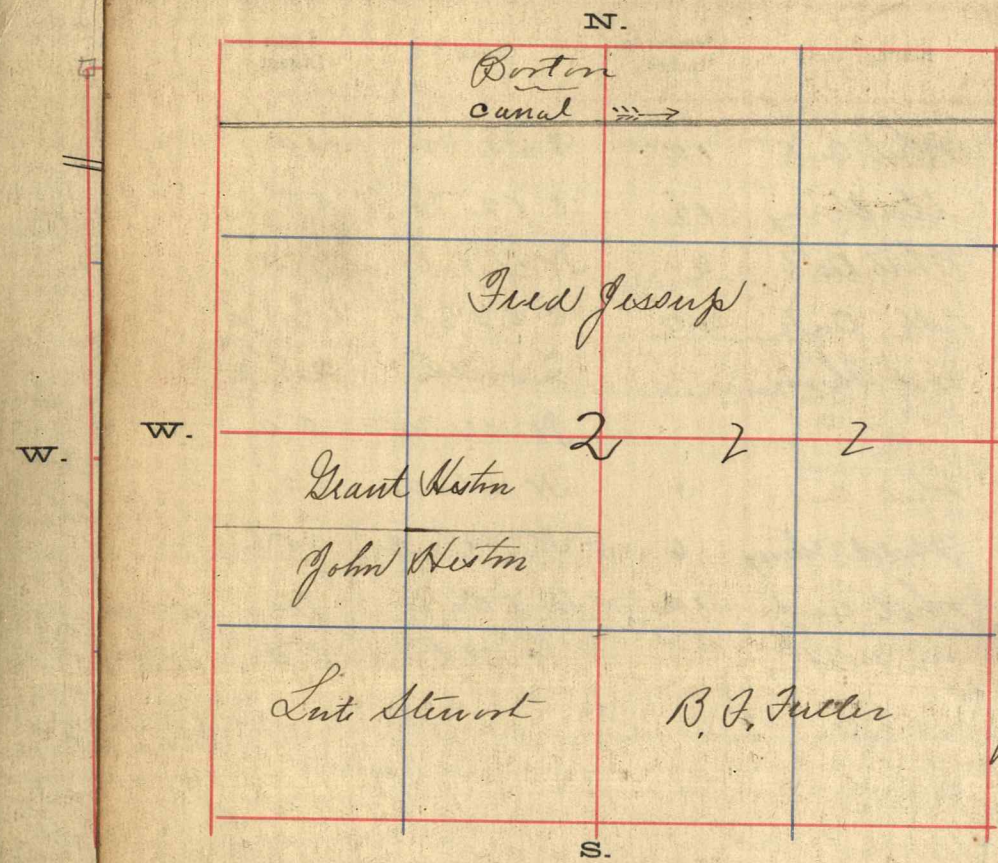 N.
Borton
canal
Fred Jessup
W.
W.
2 2 2
Grant Heston
John Heston
Lute Stewart
B. F. Fuller
S.